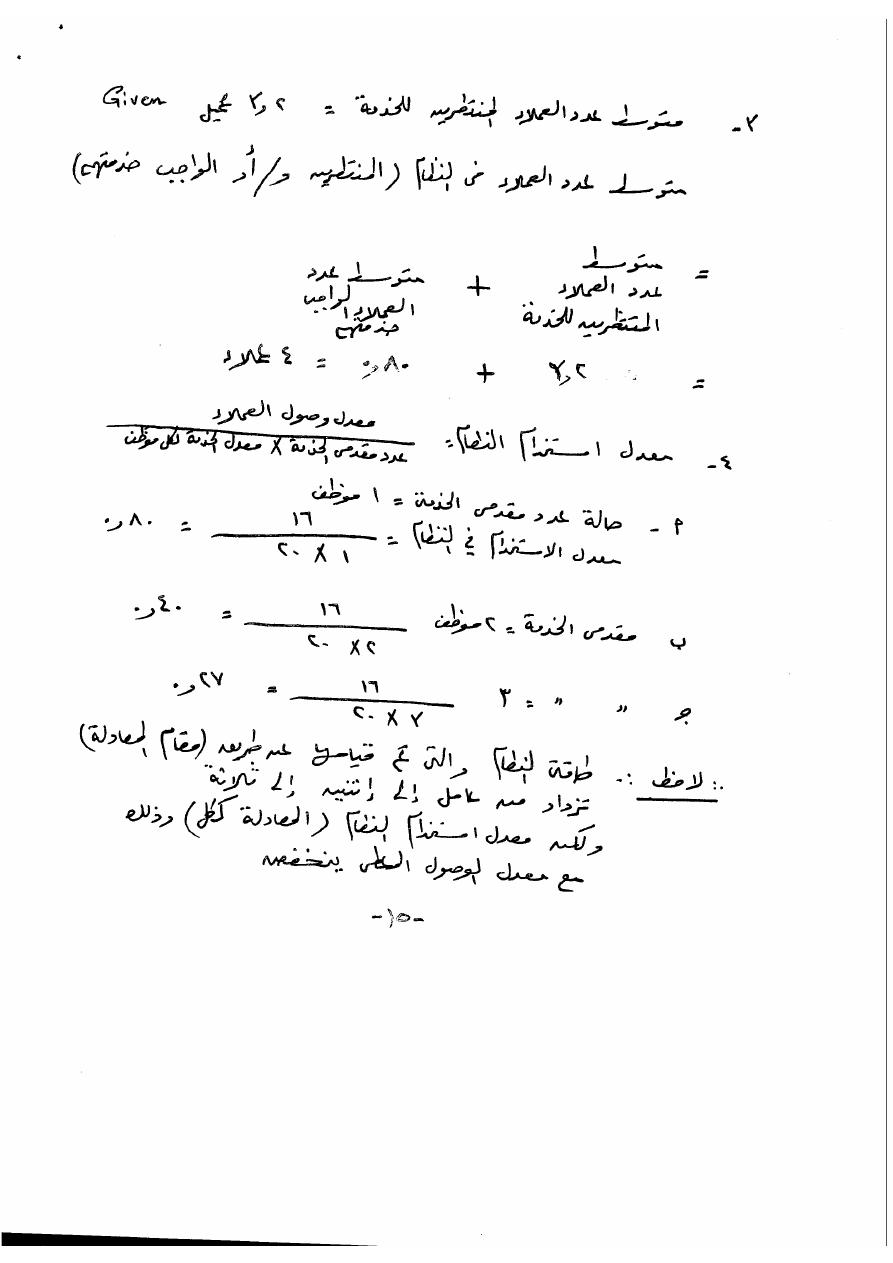 ٣- متوسط عدد العملاء المنتظرين للخدمة = ٣,٢ عميل Given
متوسط عدد العملاء في النظام (المنتظرين و/أو الواجب خدمتهم)
= متوسط عدد العملاء المنتظرين للخدمة + متوسط عدد العملاء الواجب خدمتهم
= ٣,٢ + ٠,٨٠ = ٤ عملاء
٤- معدل استخدام النظام = معدل وصول العملاء / عدد مقدمي الخدمة X معدل الخدمة لكل موظف
٢ - حالة عدد مقدمي الخدمة = ١ موظف
معدل الاستخدام في النظام = ١٦ / ١ X ٢٠ = ٠,٨٠
ب مقدمي الخدمة = ٢ موظف ١٦ / ٢ X ٢٠ = ٠,٤٠
ج " " = ٣ ١٦ / ٣ X ٢٠ = ٠,٢٧
لاحظ :- طاقة النظام والتي تم قياسها عن طريق (مقام المعادلة)
تزداد من عامل إلى إثنين إلى ثلاثة
ولكن معدل استخدام النظام (المعادلة ككل) وذلك
مع معدل الوصول ينخفض
-١٥-